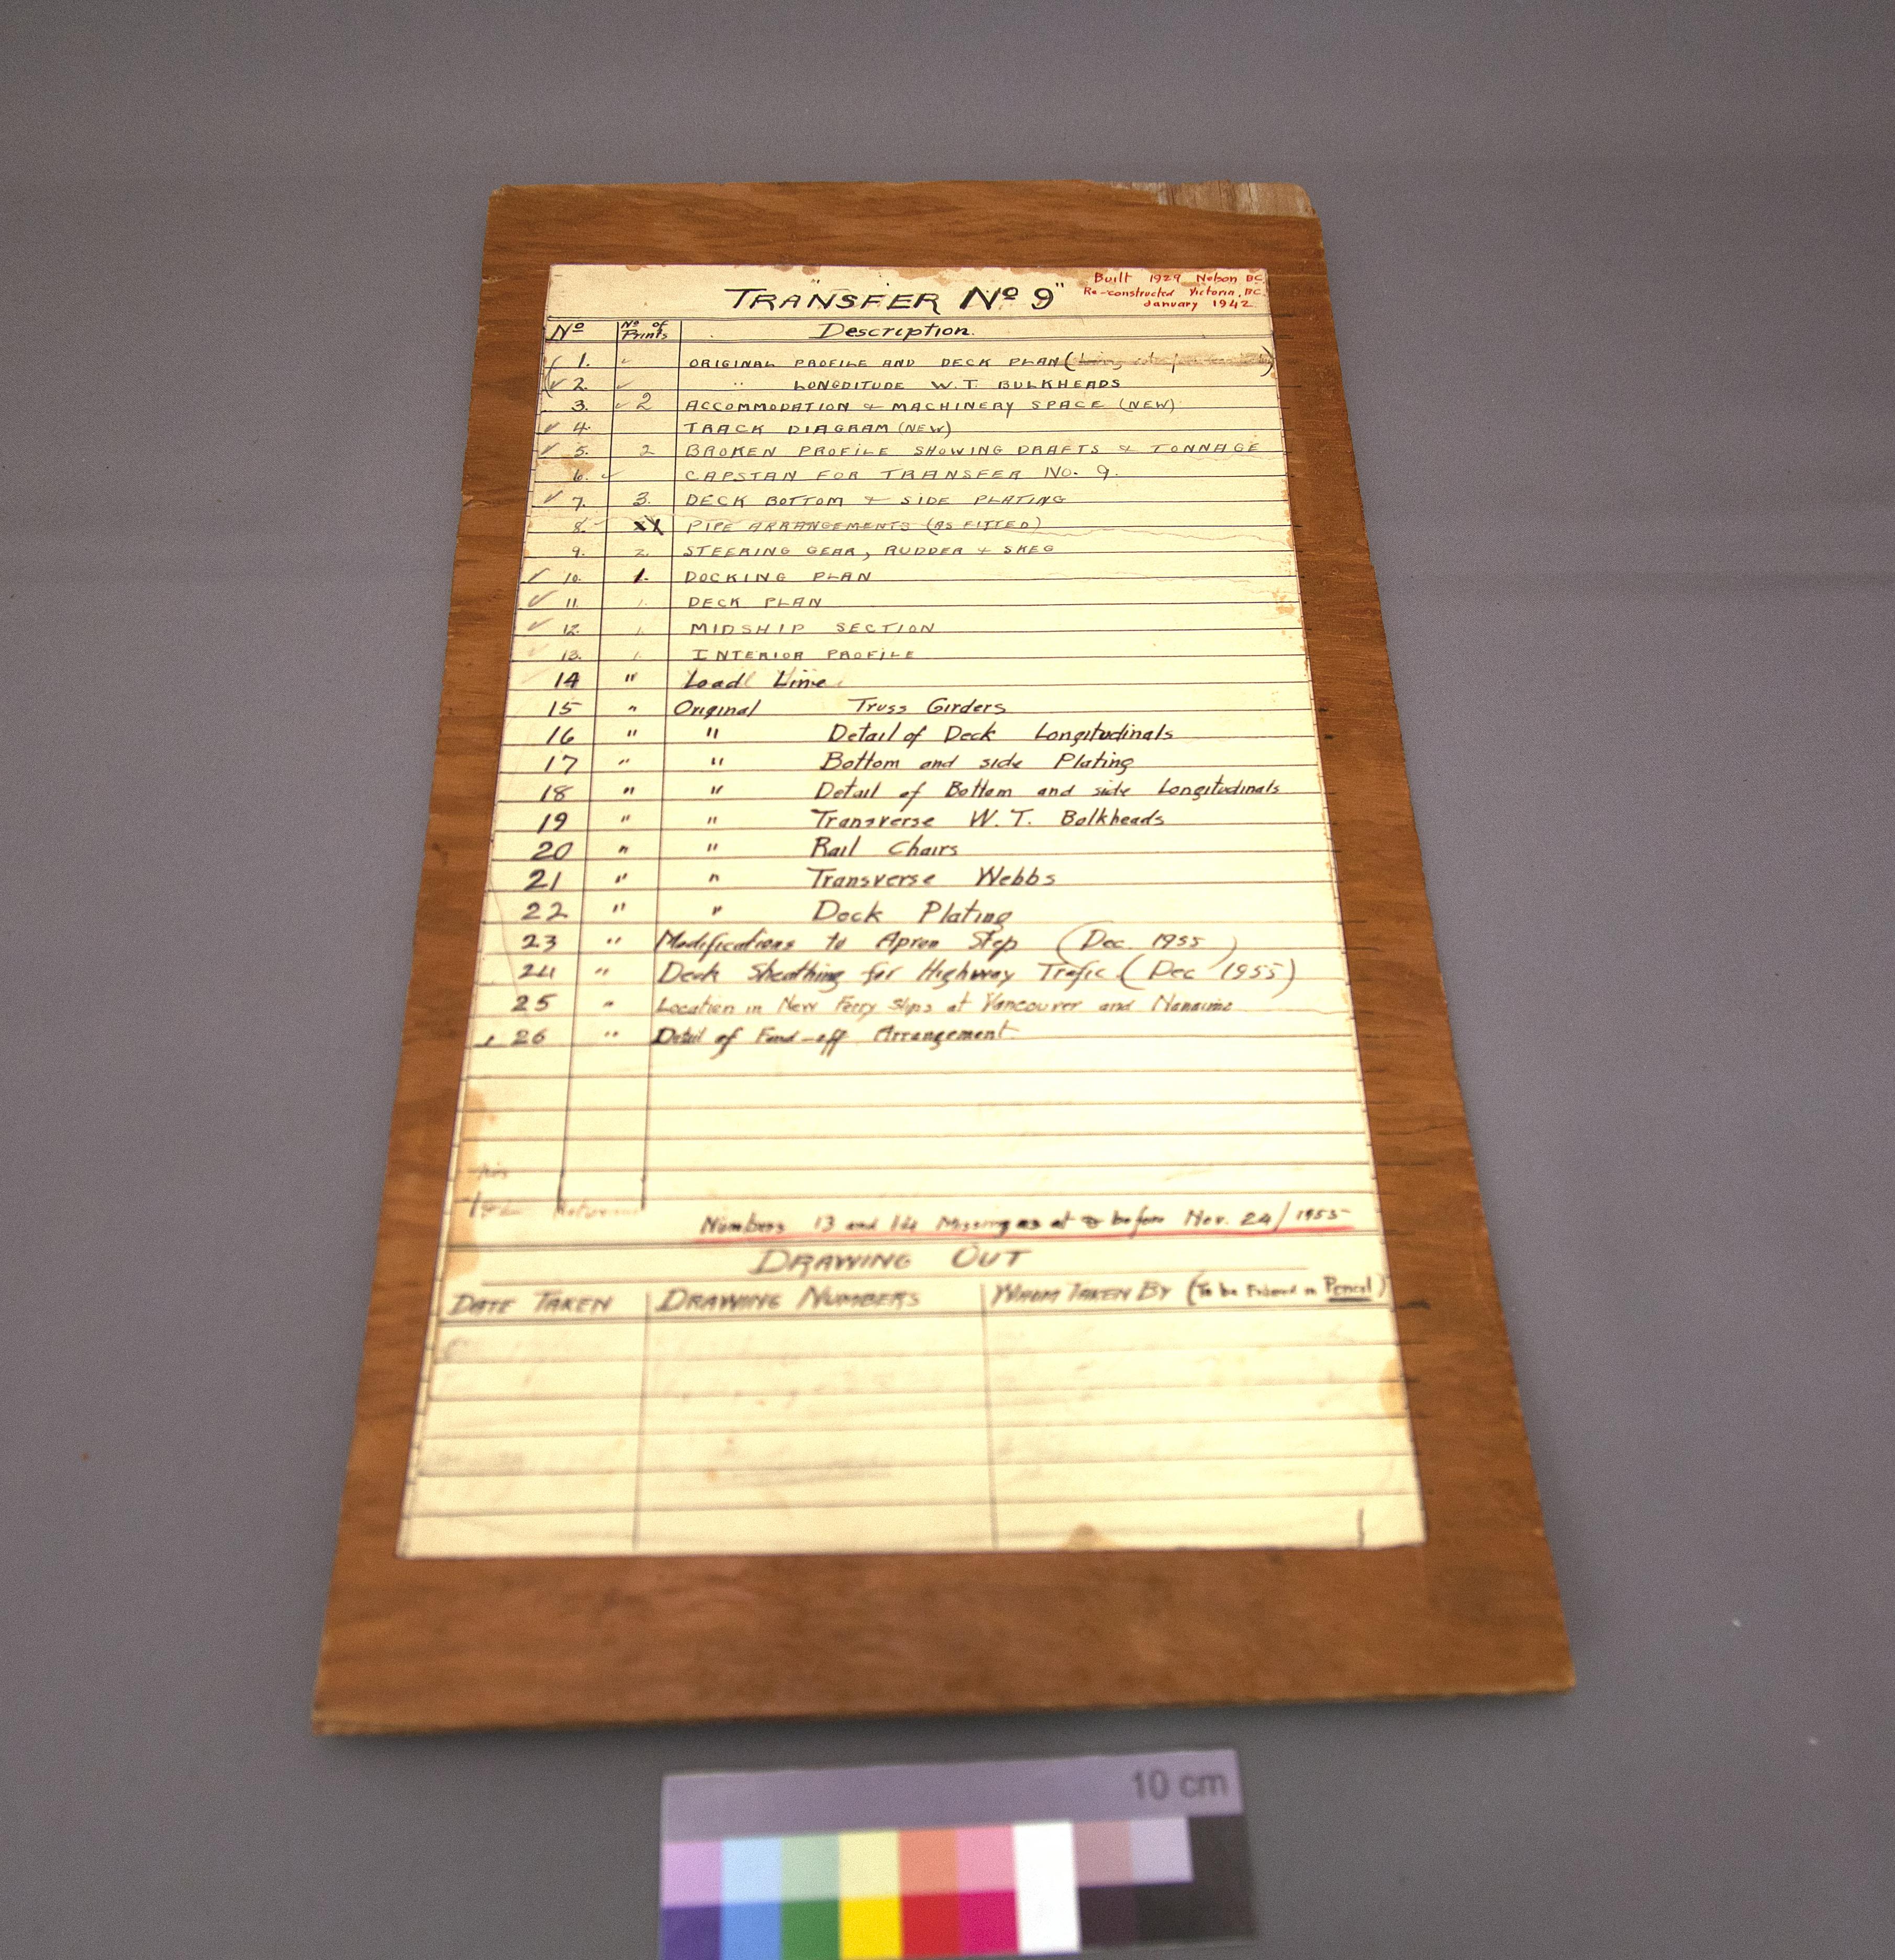 "TRANSFER Nº 9"
Built 1929 Nelson BC.
Re-constructed Victoria, BC.
January 1942.
Nº Nº of Prints Description.
1. ✓ ORIGINAL PROFILE AND DECK PLAN ( )
✓ 2. ✓ " LONGDITUDE W.T. BULKHEADS
3. ✓ 2 ACCOMMODATION & MACHINERY SPACE (NEW)
✓ 4. TRACK DIAGRAM (NEW)
✓ 5. 2 BROKEN PROFILE SHOWING DRAFTS & TONNAGE
6. ✓ CAPSTAN FOR TRANSFER NO. 9.
✓ 7. 3. DECK BOTTOM & SIDE PLATING
8. PIPE ARRANGEMENTS (AS FITTED)
9. 2. STEERING GEAR, RUDDER & SKEG
✓ 10. 1. DOCKING PLAN
✓ 11. 1. DECK PLAN
✓ 12. 1. MIDSHIP SECTION
13. 1. INTERIOR PROFILE
14 " Load Line
15 " Original Truss Girders
16 " " Detail of Deck Longitudinals
17 " " Bottom and side Plating
18 " " Detail of Bottom and side Longitudinals
19 " " Transverse W. T. Bolkheads
20 " " Rail Chairs
21 " " Transverse Webbs
22 " " Deck Plating
23 " Modifications to Apron Step (Dec. 1955)
24 " Deck Sheathing for Highway Trafic (Dec 1955)
25 " Location in New Ferry Slips at Vancouver and Nanaimo
26 " Detail of Fend-off Arrangement
Numbers 13 and 14 Missing as at or before Nov. 24/1955
DRAWING OUT
DATE TAKEN DRAWING NUMBERS WHOM TAKEN BY (To be Entered in Pencil)
10 cm